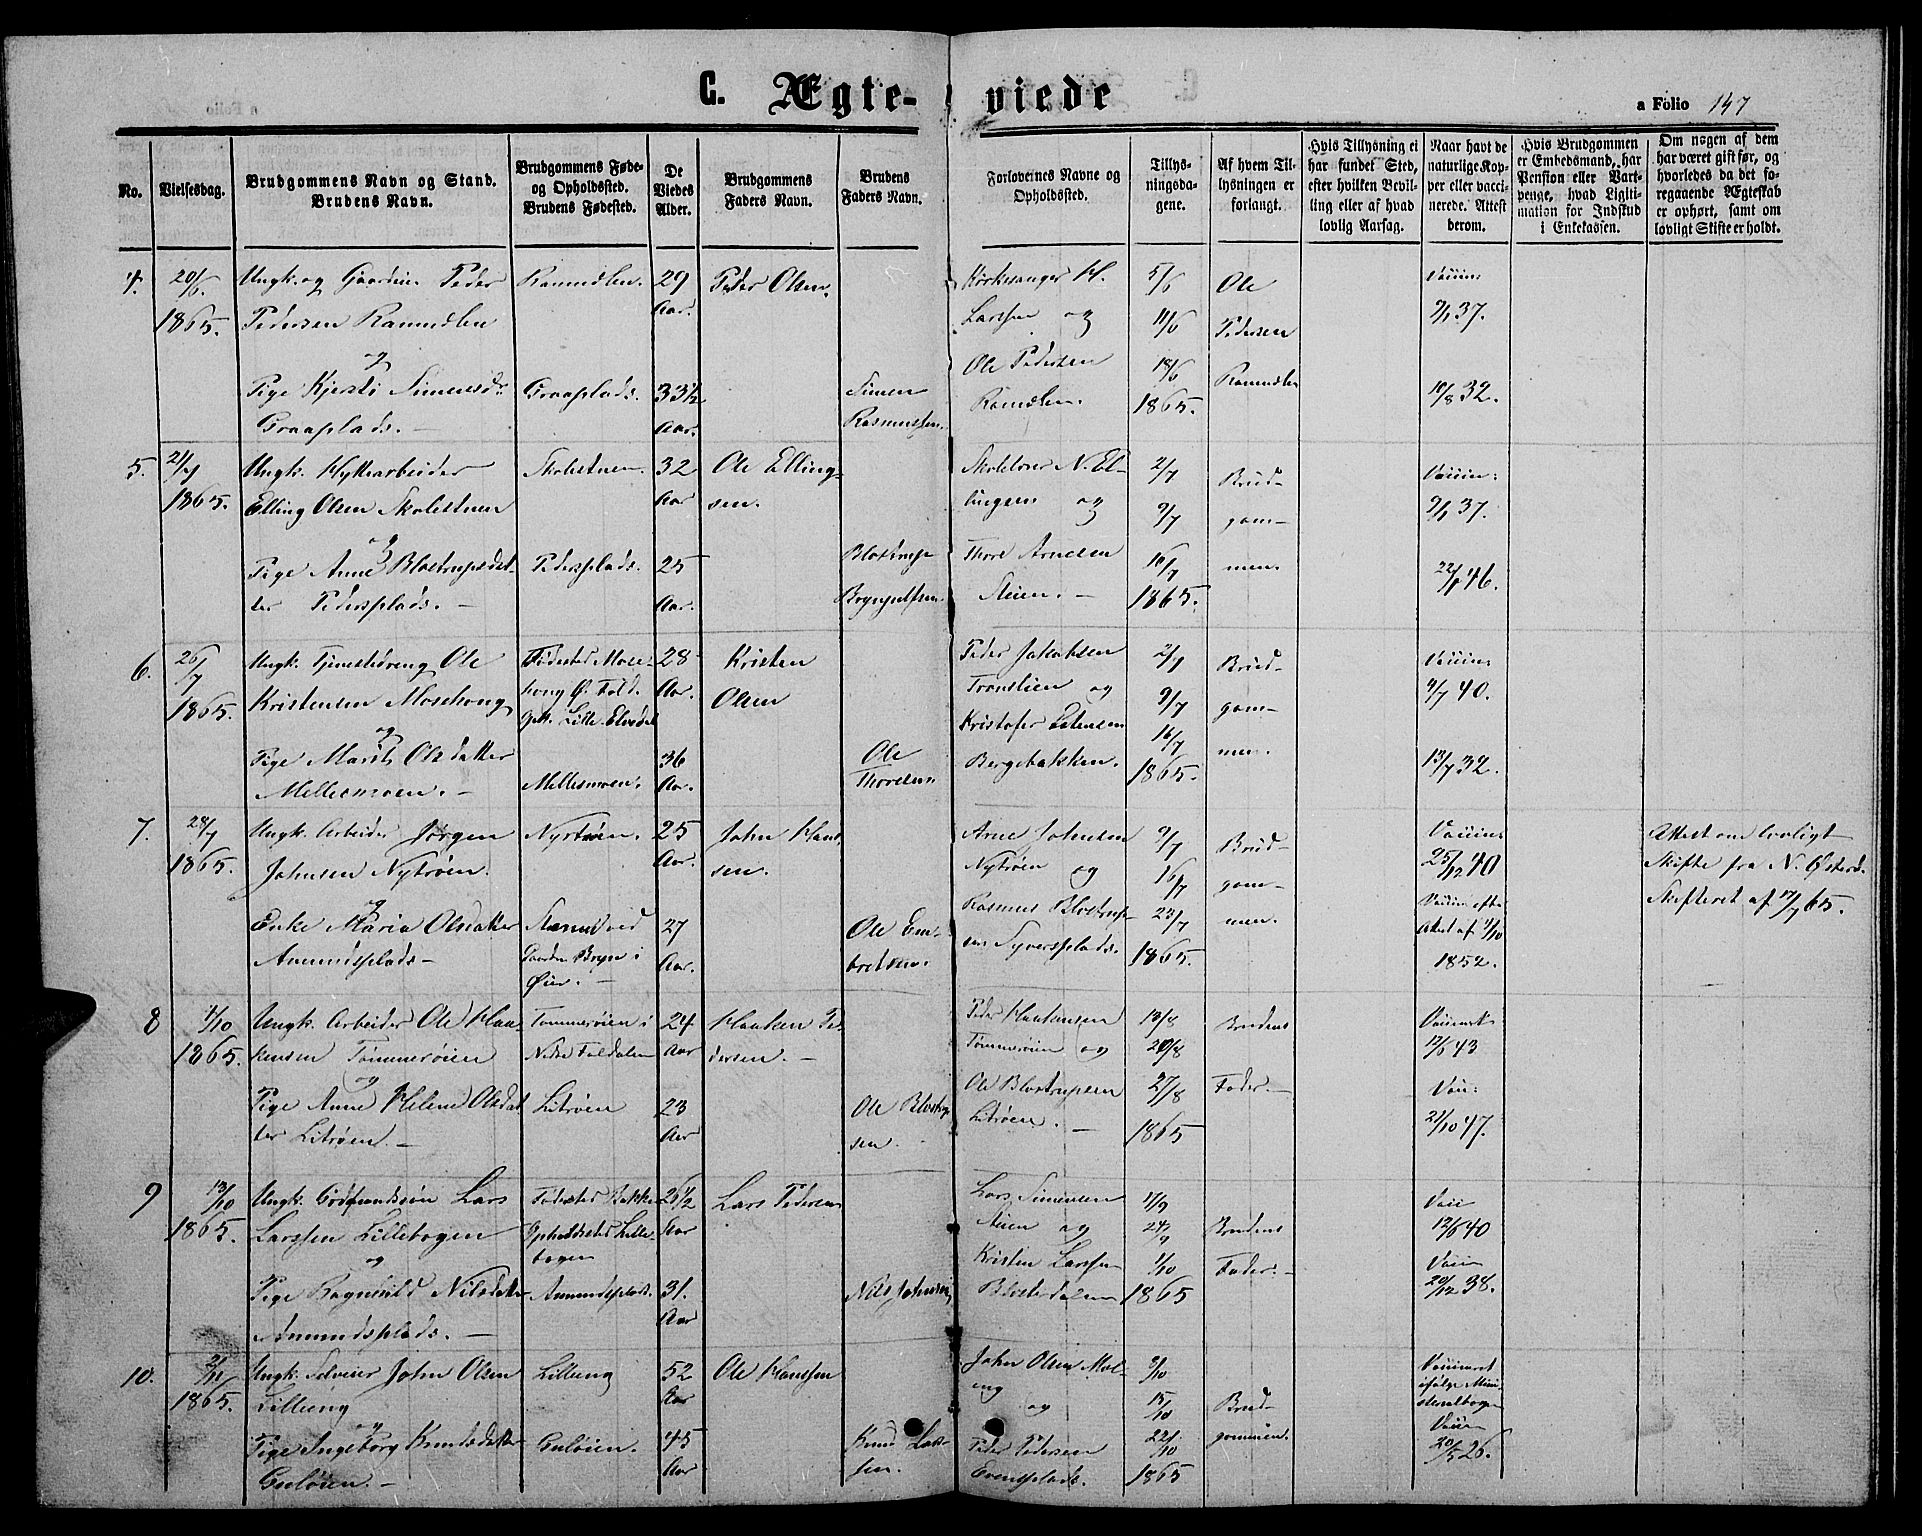 C. Ægte-viede
a Folio 147
No.
Vielsesdag.
Brudgommens Navn og Stand.
Brudens Navn.
Brudgommens Føde-
og Opholdssted.
Brudens Fødested.
De
Viedes
Alder.
Brudgommens
Faders Navn.
Brudens
Faders Navn.
Forlovernes Navne og
Opholdssted.
Tillys-
ningsda-
gene.
Af hvem Til-
lysningen er
forlangt.
Hvis Tillysning ei
har fundet Sted,
efter hvilken Bevil-
ling eller af hvad
lovlig Aarsag.
Naar havt de
naturlige Kop-
per eller vacci-
nerede. Attest
derom.
Hvis Brudgommen
er Embedsmand, har
Pension eller Vart-
penge, hvad Ligiti-
mation for Indskud
i Enkekassen.
Om nogen af dem
har været gift før, og
hvorledes da det fo-
regaaende Ægteskab
er ophørt, samt om
lovligt Skifte er holdt.
4.
20/6
1865.
Ungk. og Gaardm. Peder
Pedersen Ramudlen
og
Pige Kjersti Simensdr
Graaplads.
Ramudlen.
Graaplads.
29
Aar.
33½
Aar.
Peder Olsen.
Simen
Rasmussen.
Kirkesanger H.
Larsen og
Ole Pedersen
5/6
11/6
18/6
1865.
Ole
Pedersen
Ramudlen
Vaccin:
9/1 37.
10/8 32.
5.
21/7
1865.
Ungk. Hyttearbeider
Elling Olsen Skolestuen
og
Pige Anne Blostrupsdat-
ter Pedersplads.
Skolestuen.
Pedersplads.
32
Aar
25
Aar.
Ole Elling-
sen.
Blostrup
Brynjulfsen.
Skolelærer N. El-
lingsen og
Thore Arnesen
Steien.
2/7
9/7
16/7
1865.
Brud-
gom-
men.
Vaccin:
9/1 37.
46.
6.
26/7
1865.
Ungk. Tjenestedreng Ole
Kristensen Mosehong
og
Pige Marit Olsdatter
Mellesmoen.
Fødested Mose-
hong Ø. Fold.
Oph. Lille-Elvedal
Mellesmoen.
28
Aar.
36
Aar.
Kristen
Olsen
Ole
Thoresen
Peder Jakobsen
Tronslien og
Kristofer Estensen
Bergebakken.
2/7
9/7
16/7
1865.
Brud-
gom-
men.
Vaccin:
4/7 40.
13/7 32.
7.
28/7
1865.
Ungk. Arbeider Jørgen
Johnsen Nytrøen.
og
Enke Maria Olsdatter
Amundsplads
Nytrøen.
ved
Gaarden Bryn i
Øier.
25
Aar.
27
Aar.
John Hans-
sen.
Ole Em-
bretsen.
Arne Johnsen
Nytrøen og
Rasmus Blostrup-
sen Syversplads.
9/7
16/7
23/7
1865.
Brud-
gom-
men.
Vaccin:
25/12 40
Vaccin. efter
Attest af 4/10
1852.
Attest om lovligt
Skifte fra N. Østerd.
Skifteret af 17/7 65.
8
4/10
1865.
Ungk. Arbeider Ole Haa-
kensen Tømmerøien
og
Pige Anne Helene Olsdat
ter Litrøen.
Tømmerøien i
Nedre Foldalen
Litrøen
24
Aar
23
Aar
Haaken Pe-
dersen.
Ole Blostrup
sen.
Peder Haakensen
Tømmerøien og
Ole Blostrupsen
Litrøen.
13/8
20/8
27/8
1865
Brudens
Fader.
12/6 43
Vac:
21/10 47.
9
13/10
1865.
Ungk. Lars
Larsen Lillebogen
og
Pige Ragnhild Nilsdatter
Amundsplads.
Fødested Bakke
Opholdssted Lille-
bogen
Amundsplads.
26½
Aar
31.
Aar
Lars Pedersen
Nils Johnsen
Lars Simensen
Steien og
Kristen Larsen
24/9
1/10
1865
Brudens
Fader.
12/6 40
20/12 38.
10.
2/11
1865.
Ungk. Selveier John Olsen
Lilleeng
og
Pige Ingeborg Knudsdatter
Guløien.
Lilleeng
Guløien.
52
Aar
45
Aar
Ole Hansen
Knud Lar-
sen.
John Olsen Mel-
eng
og
Peder Pedersen
Evensplads.
8/10
15/10
22/10
1865
Brud-
gommen.
Vaccineret
ifølge Mini-
sterialbogen
26.